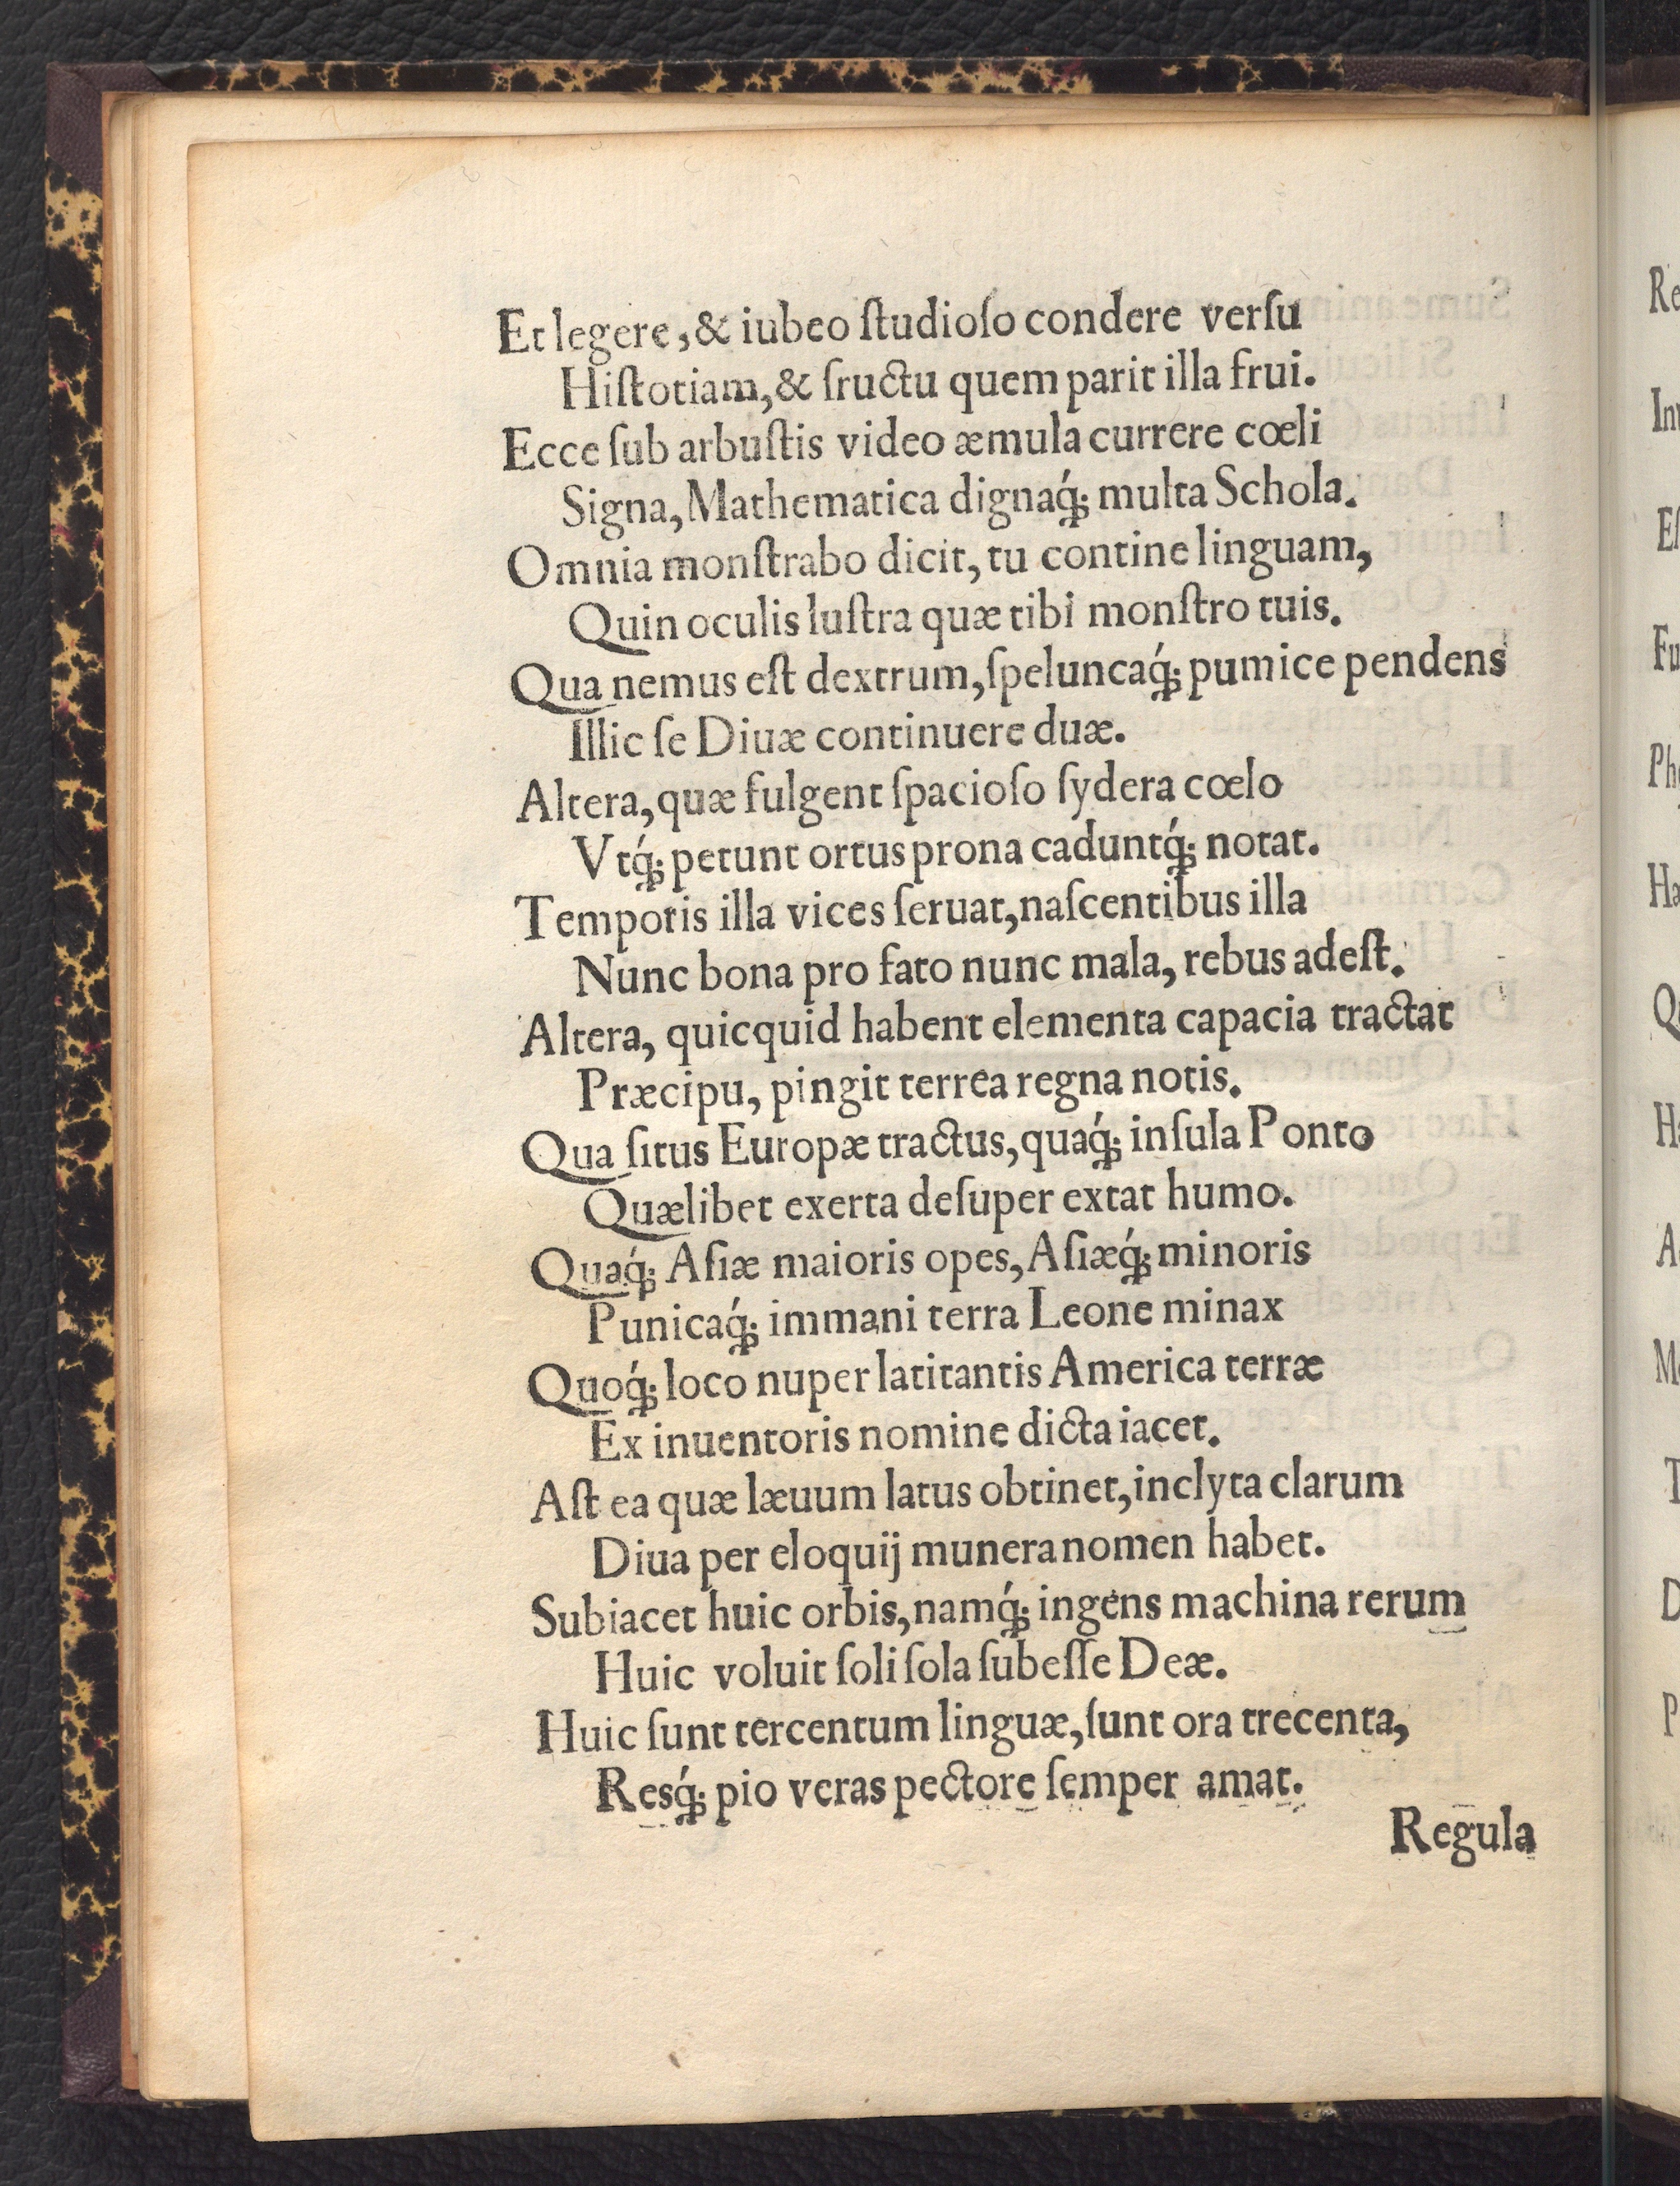 Et legere, & iubeo ſtudioſo condere verſu
Hiſtoriam, & fructu quem parit illa frui.
Ecce ſub arbuſtis video æmula currere cœli
Signa, Mathematica dignaq́; multa Schola.
Omnia monſtrabo dicit, tu contine linguam,
Quin oculis luſtra quæ tibi monſtro tuis.
Qua nemus eſt dextrum, ſpeluncaq́; pumice pendens
Illic ſe Diuæ continuere duæ.
Altera, quæ fulgent ſpacioſo ſydera cœlo
Vtq́; petunt ortus prona caduntq́; notat.
Temporis illa vices ſeruat, naſcentibus illa
Nunc bona pro fato nunc mala, rebus adeſt.
Altera, quicquid habent elementa capacia tractat
Præcipu, pingit terrea regna notis.
Qua ſitus Europæ tractus, quaq́; inſula Ponto
Quælibet exerta deſuper extat humo.
Quaq́; Aſiæ maioris opes, Aſiæq́; minoris
Punicaq́; immani terra Leone minax
Quoq́; loco nuper latitantis America terræ
Ex inuentoris nomine dicta iacet.
Aſt ea quæ læuum latus obtinet, inclyta clarum
Diua per eloquij munera nomen habet.
Subiacet huic orbis, namq́; ingens machina rerum
Huic voluit ſoli ſola ſubeſſe Deæ.
Huic ſunt tercentum linguæ, ſunt ora trecenta,
Resq́; pio veras pectore ſemper amat.
Regula